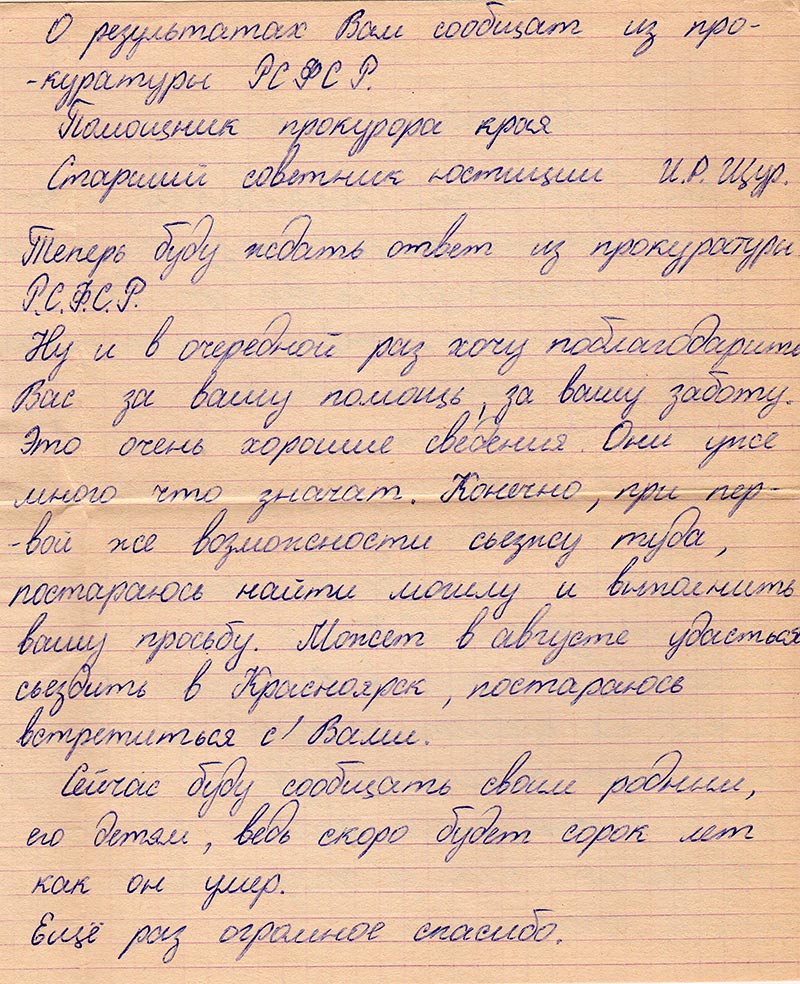 О результатах Вам сообщат из про-
-куратуры РСФСР.
Помощник прокурора края
Старший советник юстиции И.Р. Щур.
Теперь буду ждать ответ из прокуратуры
Р.С.Ф.С.Р.
Ну и в очередной раз хочу поблагодарить
Вас за вашу помощь, за вашу заботу.
Это очень хорошие сведения. Они уже
много что значат. Конечно, при пер-
-вой же возможности сьезжу туда,
постараюсь найти могилу и выполнить
вашу просьбу. Может в августе удасться
сьездить в Красноярск, постараюсь
встретиться с Вами.
Сейчас буду сообщать своим родным,
его детям, ведь скоро будет сорок лет
как он умер.
Ещё раз огромное спасибо.